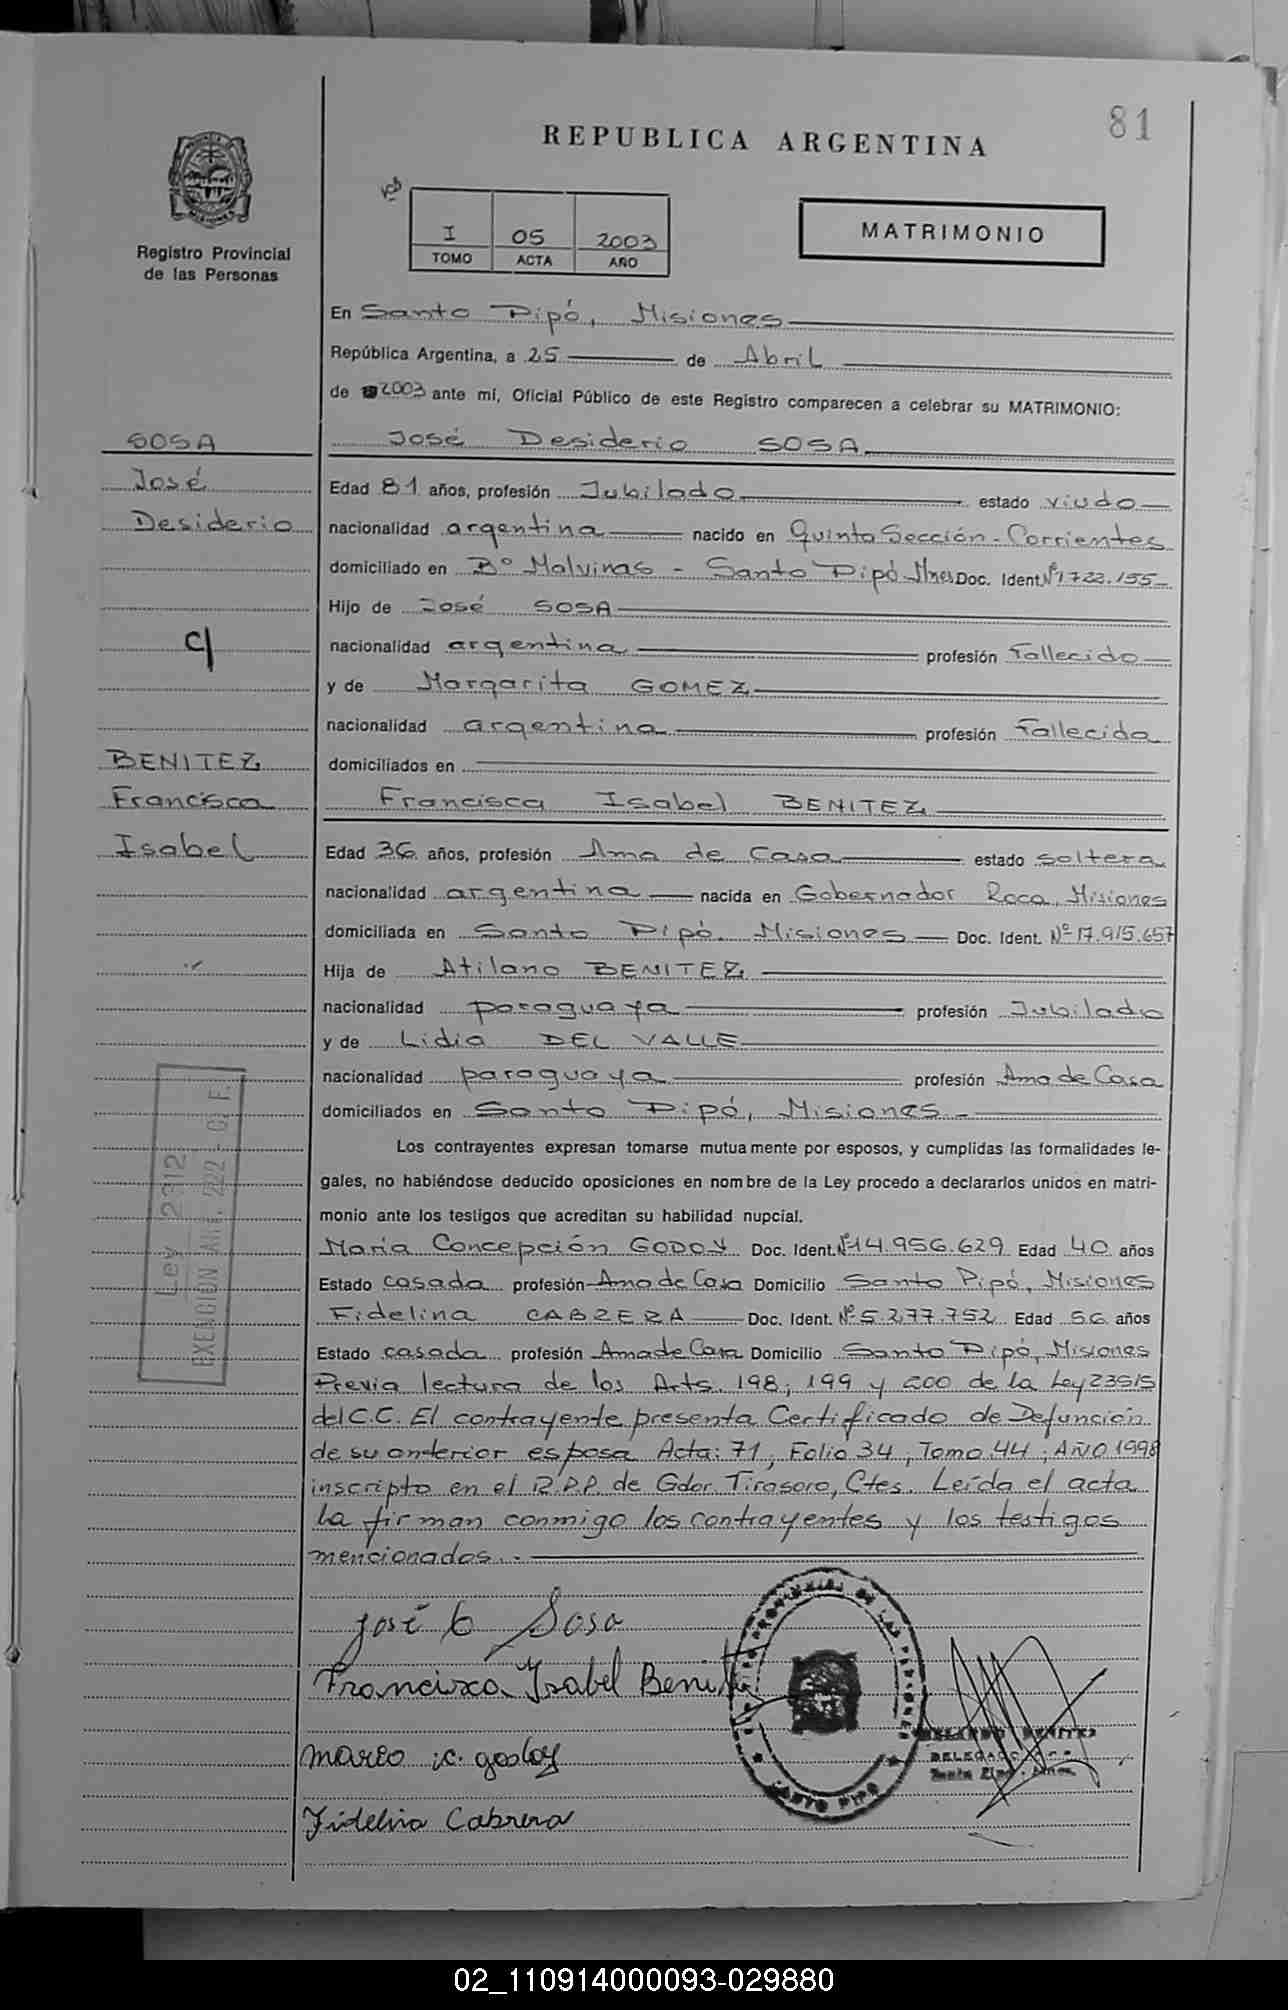 81
REPUBLICA ARGENTINA
Registro Provincial
de las Personas
I 05 2003
TOMO ACTA AÑO
MATRIMONIO
En Santo Pipó, Misiones
República Argentina, a 25 de Abril
de 2003 ante mí, Oficial Público de este Registro comparecen a celebrar su MATRIMONIO:
SOSA
José
Desiderio
c/
BENITEZ
Francisca
Isabel
José Desiderio SOSA
Edad 81 años, profesión Jubilado estado viudo
nacionalidad argentina nacido en Quinta Sección - Corrientes
domiciliado en Bº Malvinas - Santo Pipó Mnes Doc. Ident. Nº 1.722.155
Hijo de José SOSA
nacionalidad argentina profesión Fallecido
y de Margarita GOMEZ
nacionalidad argentina profesión Fallecida
domiciliados en
Francisca Isabel BENITEZ
Edad 36 años, profesión Ama de Casa estado soltera
nacionalidad argentina nacida en Gobernador Roca, Misiones
domiciliada en Santo Pipó, Misiones Doc. Ident. Nº 17.915.657
Hija de Atilano BENITEZ
nacionalidad paraguaya profesión Jubilado
y de Lidia DEL VALLE
nacionalidad paraguaya profesión Ama de Casa
domiciliados en Santo Pipó, Misiones.-
Los contrayentes expresan tomarse mutuamente por esposos, y cumplidas las formalidades le-
gales, no habiéndose deducido oposiciones en nombre de la Ley procedo a declararlos unidos en matri-
monio ante los testigos que acreditan su habilidad nupcial.
María Concepción GODOY Doc. Ident. Nº 14.956.629 Edad 40 años
Estado casada profesión Ama de Casa Domicilio Santo Pipó, Misiones
Fidelina CABRERA Doc. Ident. Nº 5.277.752 Edad 56 años
Estado casada profesión Ama de Casa Domicilio Santo Pipó, Misiones
Previa lectura de los Arts. 198; 199 y 200 de la Ley 23515
del C.C. El contrayente presenta Certificado de Defunción
de su anterior esposa Acta: 71, Folio 34, Tomo 44; AÑO 1998
inscripto en el R.P.P. de Gdor. Virasoro, Ctes. Leída el acta
la firman conmigo los contrayentes y los testigos
mencionados.-
Ley 2312
EXENCION Art. 222 - C. F.
José D Sosa
Francisca Isabel Benitez
Maria C. Godoy
Fidelina Cabrera
REGISTRO PROVINCIAL DE LAS PERSONAS
SANTO PIPO
BENITEZ
DELEGADO
Santo Pipó - Mnes.
02_110914000093-029880